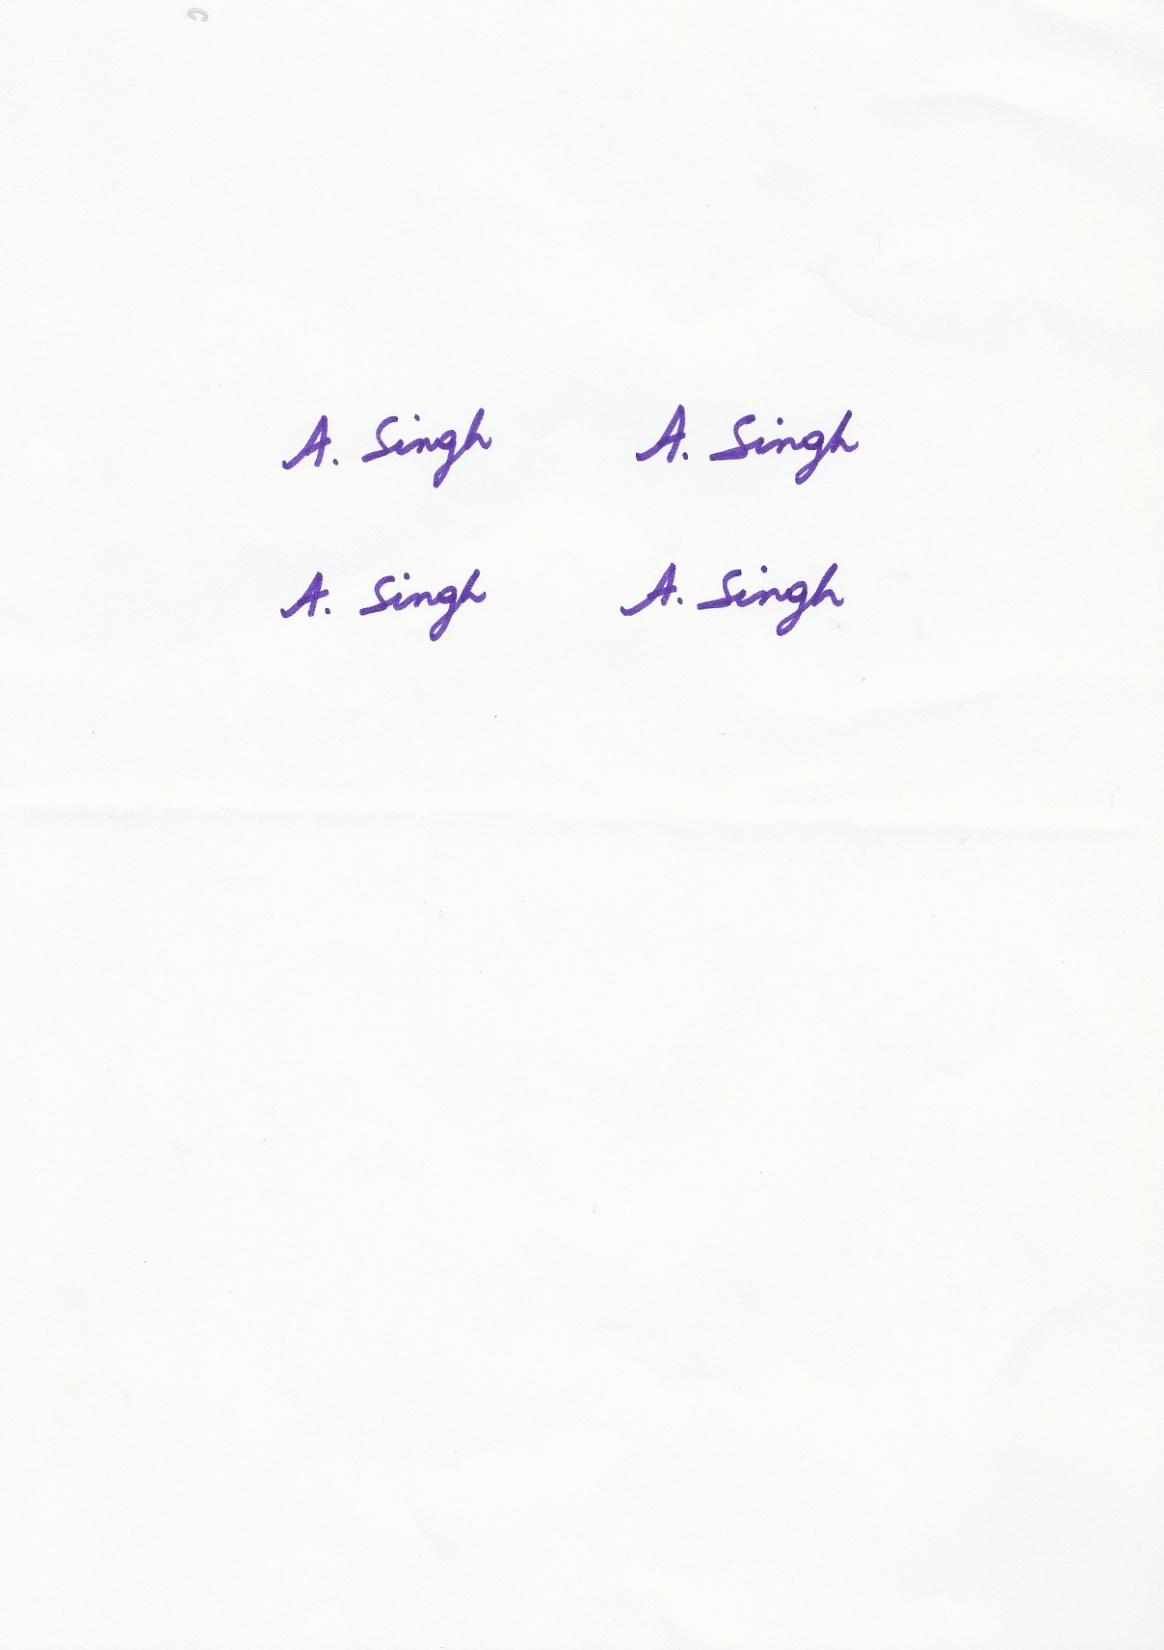 A. Singh A. Singh
A. Singh A. Singh